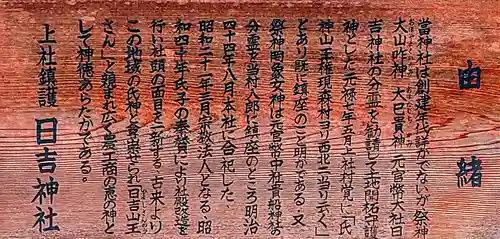 由緒
當神社は創建年代詳かでないが祭神
大山咋神 大己貴神 元官幣大社日
吉神社の分霊を勧請して土地開拓守護
神とした 元禄七年五月一社村覚に「氏
神山王権現 森村ヨリ西北ニ当リテ之ク」
とあり既に鎮座のこと明かである 又
祭神岡象女神は元官幣中社貴船神社の
分霊で当村八郎に鎮座のところ明治
四十四年八月本社に合祀した
昭和二十一年三月宗教法人となる 昭
和四十年氏子の奉賛により社殿改造を
行い社頭の面目を一新する 古来より
この地域の氏神と尊崇せられ日吉山王
さんへと親まれ広く農工商の恵の神と
して神徳あらたかである。
上社鎮護 日吉神社